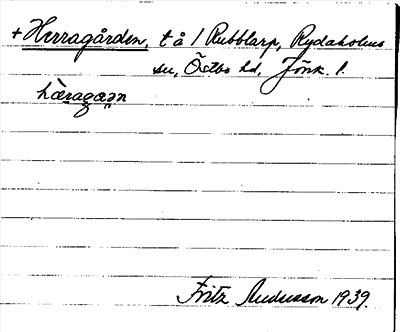 + Herragården, t å 1 Rubblarp, Rydaholms
sn, Östbo hd, Jönk. l.
hæ̀ragæən
Fritz Andersson 1939.